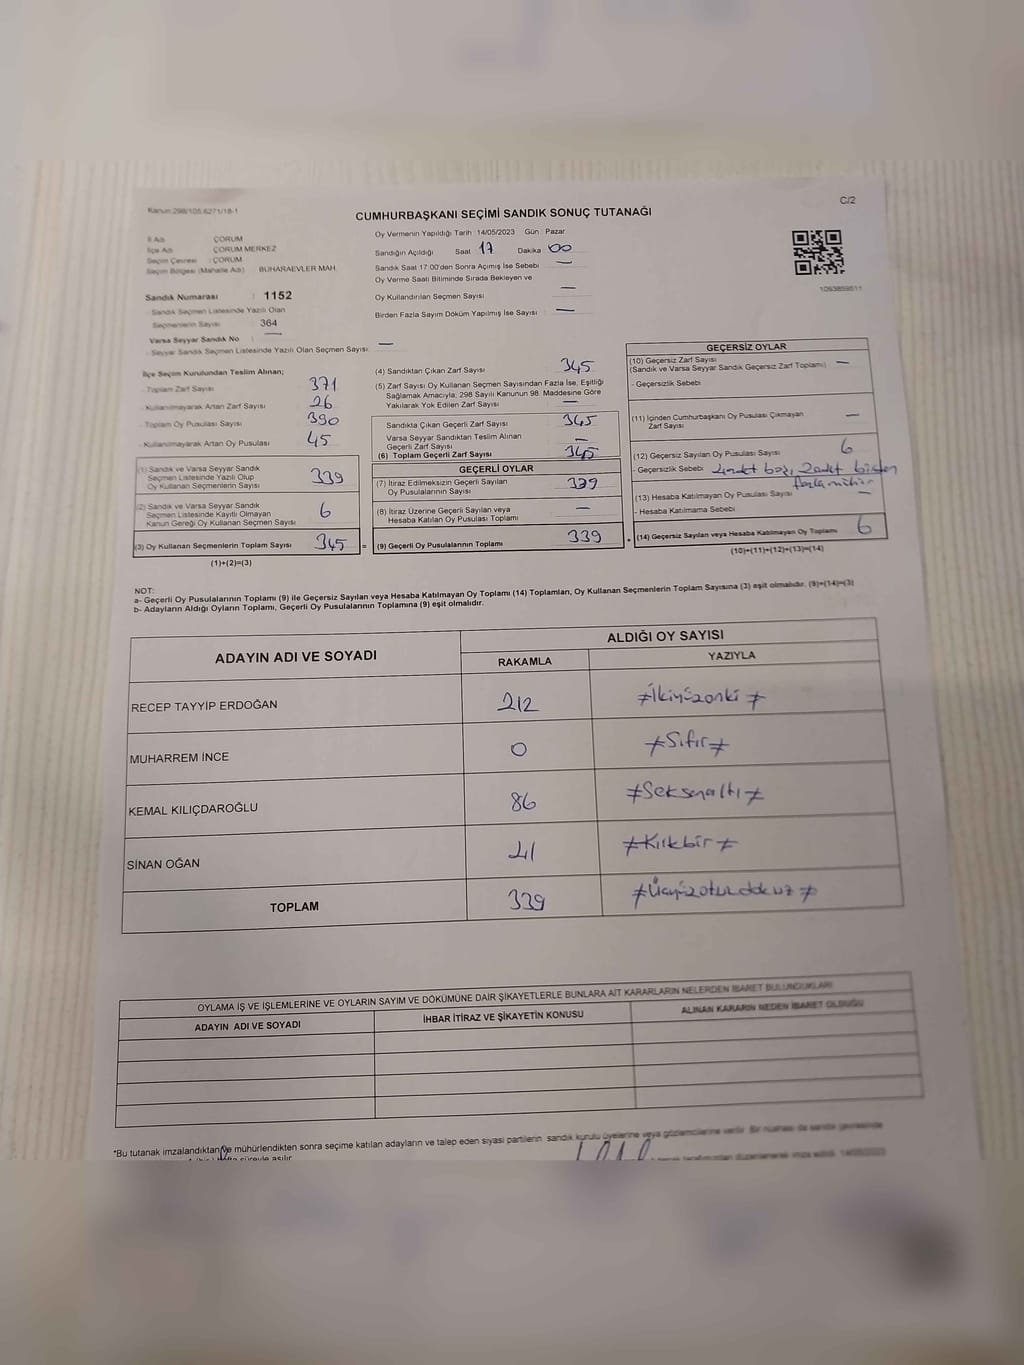 Kanun:298/105,6271/18-1
C/2
CUMHURBAŞKANI SEÇİMİ SANDIK SONUÇ TUTANAĞI
İl Adı : ÇORUM
İlçe Adı : ÇORUM MERKEZ
Seçim Çevresi : ÇORUM
Seçim Bölgesi (Mahalle Adı) : BUHARAEVLER MAH.
Sandık Numarası : 1152
- Sandık Seçmen Listesinde Yazılı Olan
Seçmenlerin Sayısı : 364
Varsa Seyyar Sandık No : —
- Seyyar Sandık Seçmen Listesinde Yazılı Olan Seçmen Sayısı: —
Oy Vermenin Yapıldığı Tarih :14/05/2023 Gün : Pazar
Sandığın Açıldığı Saat 17 Dakika 00
Sandık Saat 17:00'den Sonra Açımış İse Sebebi —
Oy Verme Saati Bitiminde Sırada Bekleyen ve
Oy Kullandırılan Seçmen Sayısı —
Birden Fazla Sayım Döküm Yapılmış İse Sayısı —
1093859511
İlçe Seçim Kurulundan Teslim Alınan;
- Toplam Zarf Sayısı 371
- Kullanılmayarak Artan Zarf Sayısı 26
- Toplam Oy Pusulası Sayısı 390
- Kullanılmayarak Artan Oy Pusulası 45
(1) Sandık ve Varsa Seyyar Sandık
Seçmen Listesinde Yazılı Olup
Oy Kullanan Seçmenlerin Sayısı 339
(2) Sandık ve Varsa Seyyar Sandık
Seçmen Listesinde Kayıtlı Olmayan
Kanun Gereği Oy Kullanan Seçmen Sayısı 6
(3) Oy Kullanan Seçmenlerin Toplam Sayısı 345 =
(1)+(2)=(3)
(4) Sandıktan Çıkan Zarf Sayısı 345
(5) Zarf Sayısı Oy Kullanan Seçmen Sayısından Fazla İse, Eşitliği
Sağlamak Amacıyla; 298 Sayılı Kanunun 98. Maddesine Göre
Yakılarak Yok Edilen Zarf Sayısı —
Sandıkta Çıkan Geçerli Zarf Sayısı 345
Varsa Seyyar Sandıktan Teslim Alınan
Geçerli Zarf Sayısı —
(6) Toplam Geçerli Zarf Sayısı 345
GEÇERLİ OYLAR
(7) İtiraz Edilmeksizin Geçerli Sayılan
Oy Pusulalarının Sayısı 339
(8) İtiraz Üzerine Geçerli Sayılan veya
Hesaba Katılan Oy Pusulası Toplamı —
(9) Geçerli Oy Pusulalarının Toplamı 339
GEÇERSİZ OYLAR
(10) Geçersiz Zarf Sayısı
(Sandık ve Varsa Seyyar Sandık Geçersiz Zarf Toplamı) —
- Geçersizlik Sebebi
(11) İçinden Cumhurbaşkanı Oy Pusulası Çıkmayan
Zarf Sayısı —
(12) Geçersiz Sayılan Oy Pusulası Sayısı 6
- Geçersizlik Sebebi 4 adet boş, 2 adet birden
fazla mühür
(13) Hesaba Katılmayan Oy Pusulası Sayısı —
- Hesaba Katılmama Sebebi
(14) Geçersiz Sayılan veya Hesaba Katılmayan Oy Toplamı 6
(10)+(11)+(12)+(13)=(14)
NOT:
a- Geçerli Oy Pusulalarının Toplamı (9) ile Geçersiz Sayılan veya Hesaba Katılmayan Oy Toplamı (14) Toplamları, Oy Kullanan Seçmenlerin Toplam Sayısına (3) eşit olmalıdır. (9)+(14)=(3)
b- Adayların Aldığı Oyların Toplamı, Geçerli Oy Pusulalarının Toplamına (9) eşit olmalıdır.
ADAYIN ADI VE SOYADI
ALDIĞI OY SAYISI
RAKAMLA YAZIYLA
RECEP TAYYİP ERDOĞAN 212 ≠İkiyüzoniki≠
MUHARREM İNCE 0 ≠Sıfır≠
KEMAL KILIÇDAROĞLU 86 ≠Seksenaltı≠
SİNAN OĞAN 41 ≠Kırkbir≠
TOPLAM 339 ≠Üçyüzotuzdokuz≠
OYLAMA İŞ VE İŞLEMLERİNE VE OYLARIN SAYIM VE DÖKÜMÜNE DAİR ŞİKAYETLERLE BUNLARA AİT KARARLARIN NELERDEN İBARET BULUNDUKLARI
ADAYIN ADI VE SOYADI İHBAR İTİRAZ VE ŞİKAYETİN KONUSU ALINAN KARARIN NEDEN İBARET OLDUĞU
*Bu tutanak imzalandıktan ve mühürlendikten sonra seçime katılan adayların ve talep eden siyasi partilerin sandık kurulu üyelerine veya gözlemcilerine verilir. Bir nüshası da sandık çevresinde
süreyle asılır. tarafımızdan düzenlenerek imza edildi. 14/05/2023